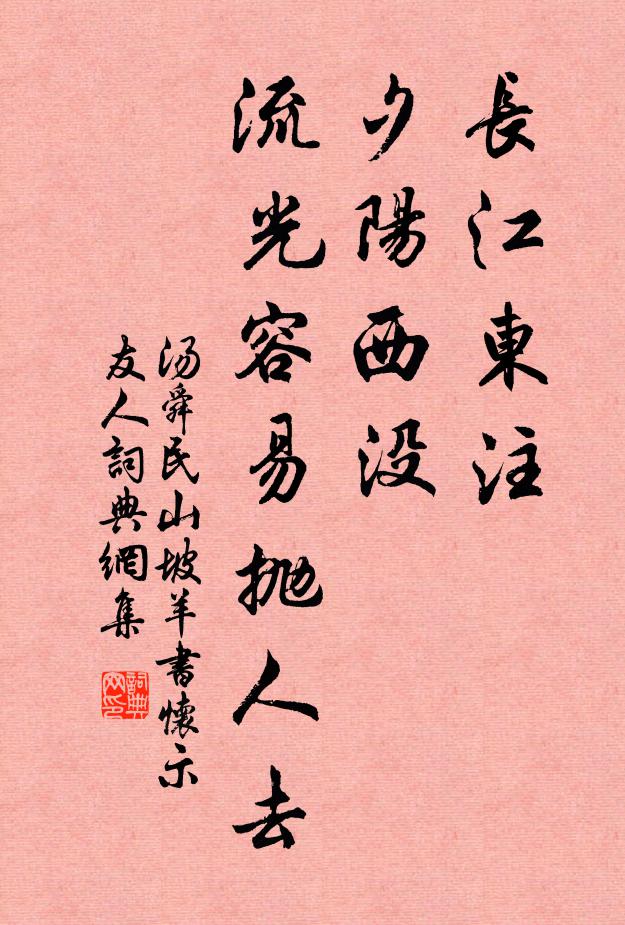 長江東注
夕陽西没
流光容易抛人去
汤舜民山坡羊書懷示
友人詞典網集
詞典
网印